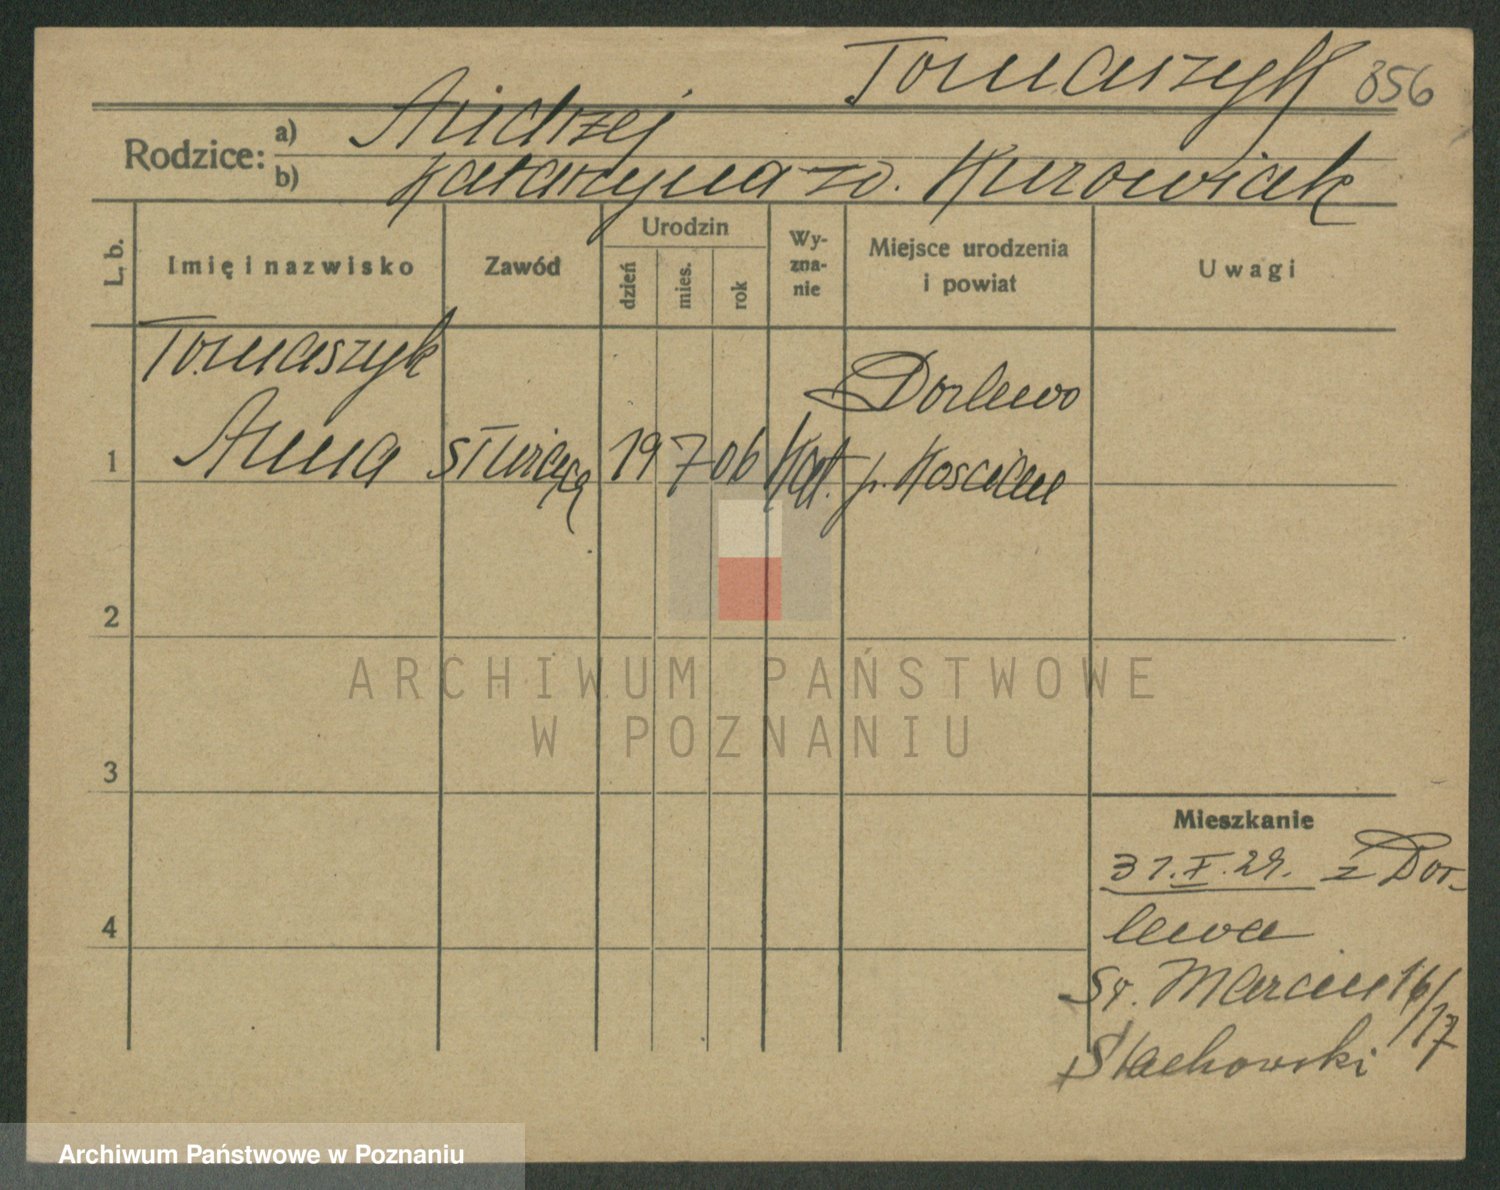 Tomaszyk 856
Rodzice: a) Andrzej
b) Katarzyna z d. Kurowiak
L. b.
Imię i nazwisko
Zawód
Urodzin
dzień
mies.
rok
Wy-
zna-
nie
Miejsce urodzenia
i powiat
Uwagi
Tomaszyk
Dorlewo
1 Anna służąca 19 7 06 kat. p. Kościan
2
3
4
ARCHIWUM PAŃSTWOWE
W POZNANIU
Mieszkanie
31.X.29. z Dor-
lewa
Sw. Marcin 16/17
Stachowski
Archiwum Państwowe w Poznaniu